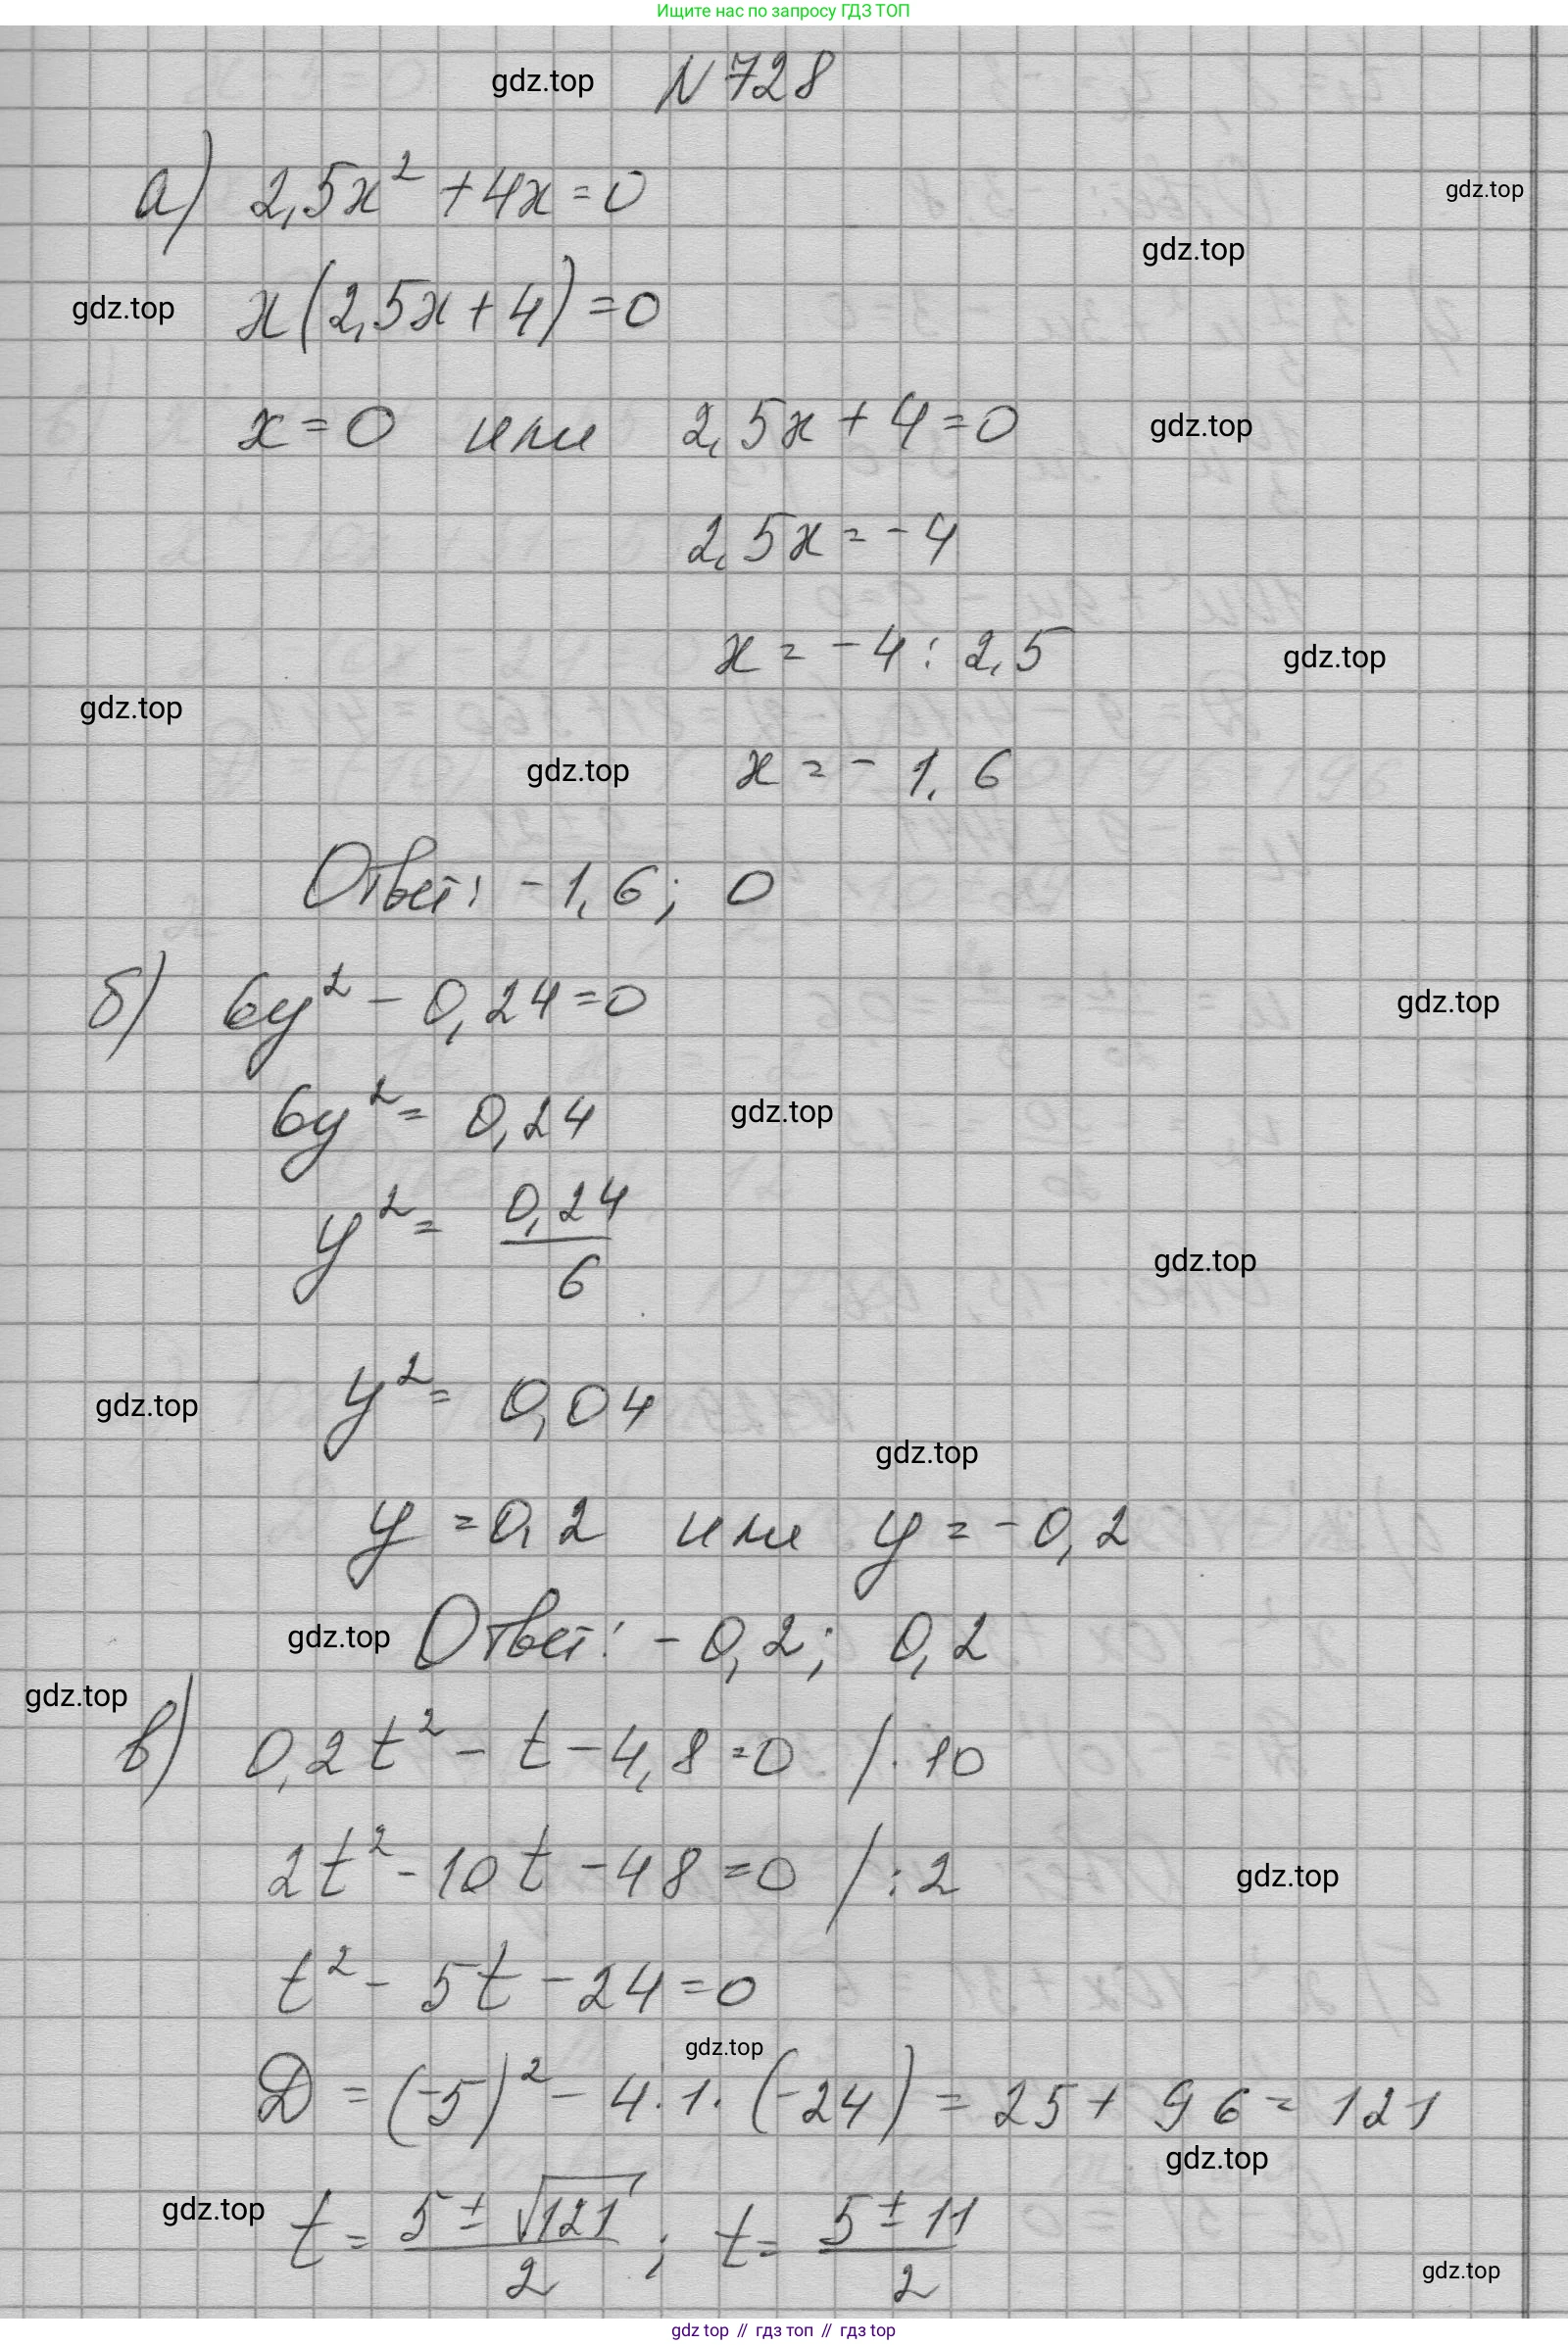 Ищите нас по запросу ГДЗ ТОП
gdz.top N 728
а) 2,5x² + 4x = 0
gdz.top
gdz.top
gdz.top x(2,5x + 4) = 0
x = 0 или 2,5x + 4 = 0 gdz.top
2,5x = -4
x = -4 : 2,5 gdz.top
gdz.top
gdz.top x = -1,6
Ответ: -1,6; 0
б) 6y² - 0,24 = 0 gdz.top
6y² = 0,24 gdz.top
y² = 0,24/6 gdz.top
gdz.top y² = 0,04
gdz.top
y = 0,2 или y = -0,2
gdz.top Ответ: -0,2; 0,2
gdz.top
в) 0,2t² - t - 4,8 = 0 /·10
2t² - 10t - 48 = 0 /:2 gdz.top
t² - 5t - 24 = 0
gdz.top
D = (-5)² - 4·1·(-24) = 25 + 96 = 121
gdz.top
gdz.top t = (5 ± √121)/2; t = (5 ± 11)/2
gdz.top
gdz top // гдз топ // гдз top